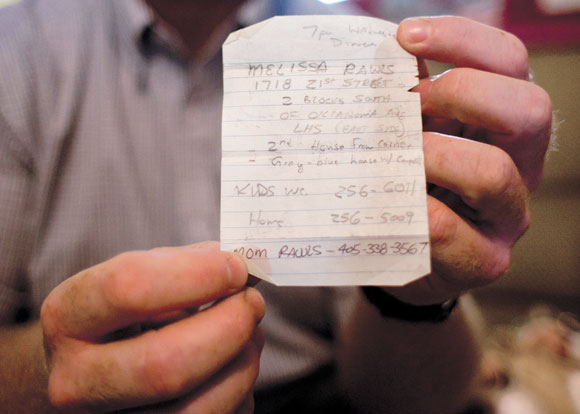 7pm
Dinner
MELISSA RAWLS
1718 21ST STREET
2 BLOCKS SOUTH
OF OKLAHOMA AVE
LHS (EAST SIDE)
- 2nd House From Corner
- Gray-blue house w/
KIDS WC. 256-6011
Home 256-5009
MOM RAWLS - 405-338-3567